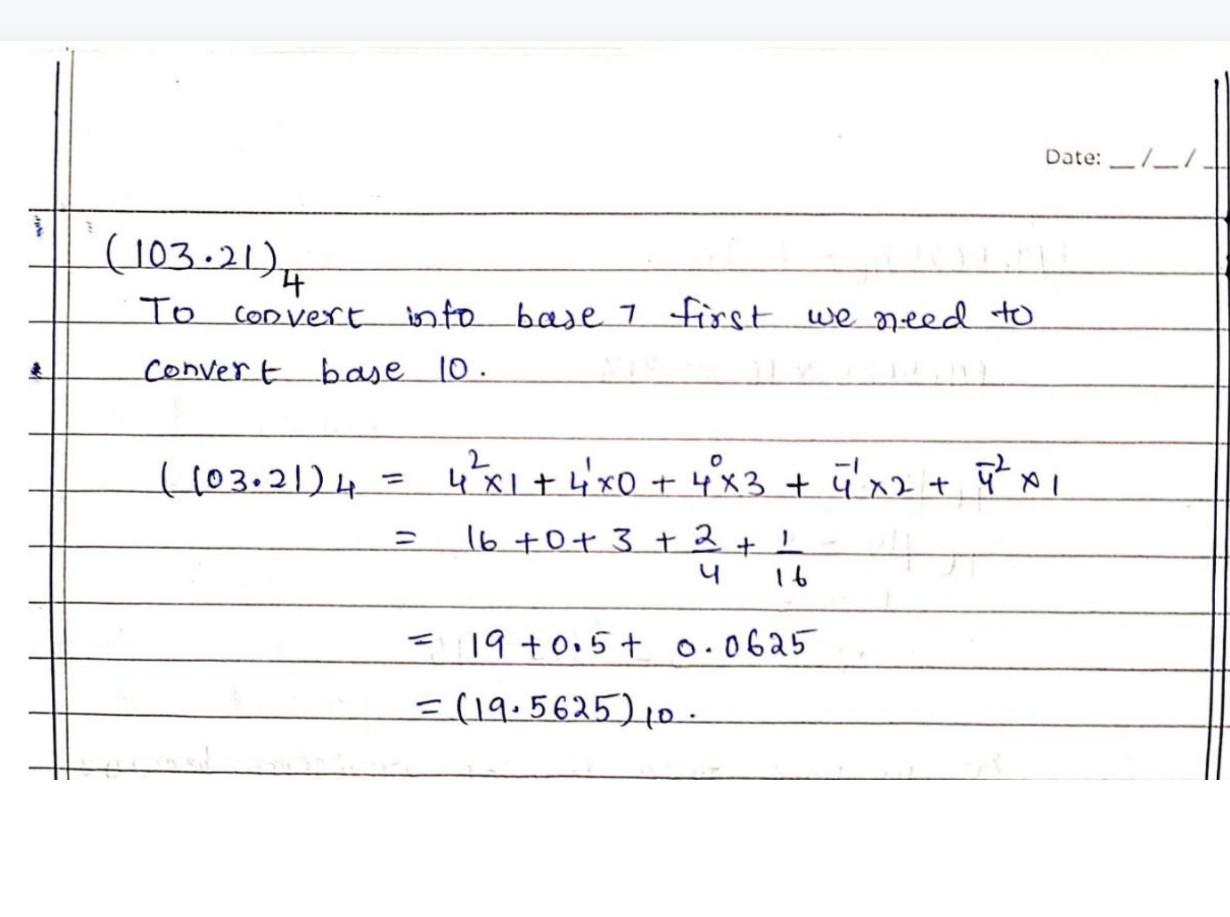 Date: __/__/__
(103.21)₄
To convert into base 7 first we need to
convert base 10.
(103.21)4 = 4²×1 + 4¹×0 + 4⁰×3 + 4⁻¹×2 + 4⁻²×1
= 16 + 0 + 3 + 2/4 + 1/16
= 19 + 0.5 + 0.0625
= (19.5625)10.